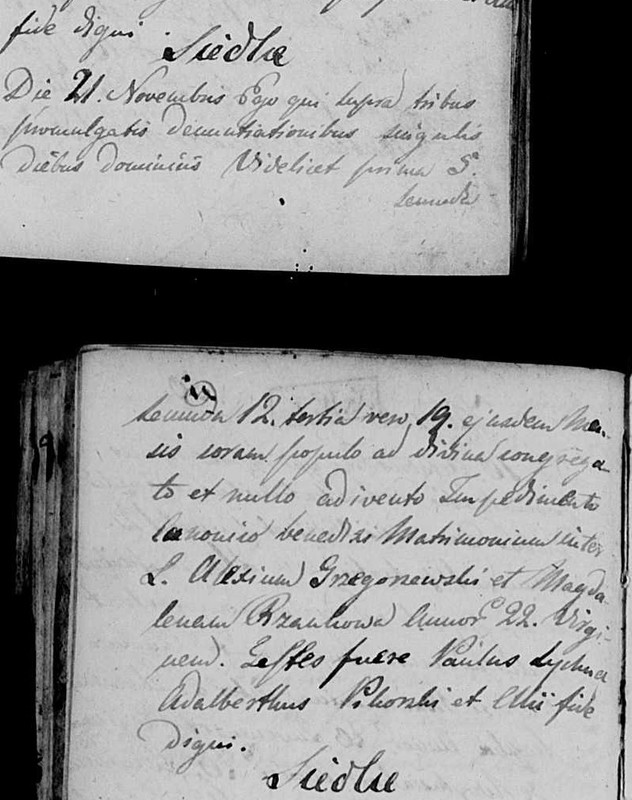 fide digni
Siedlce
Die 21. Novembris Ego qui supra tribus
promulgatis denuntiationibus singulis
diebus dominicis Videlicet prima 5.
secunda
secunda 12. tertia vero 19. ejusdem Men-
sis coram populo ad divina congrega-
to et nullo adivento Impedimento
Canonico benedixi Matrimonium inter
L. Alexium Grzegorzewski et Magda-
lenam Rzankowa Annor 22. Virgi-
nem. Testes fuere Paulus
Adalberthus Pikorski et Alii fide
digni.
Siedlce